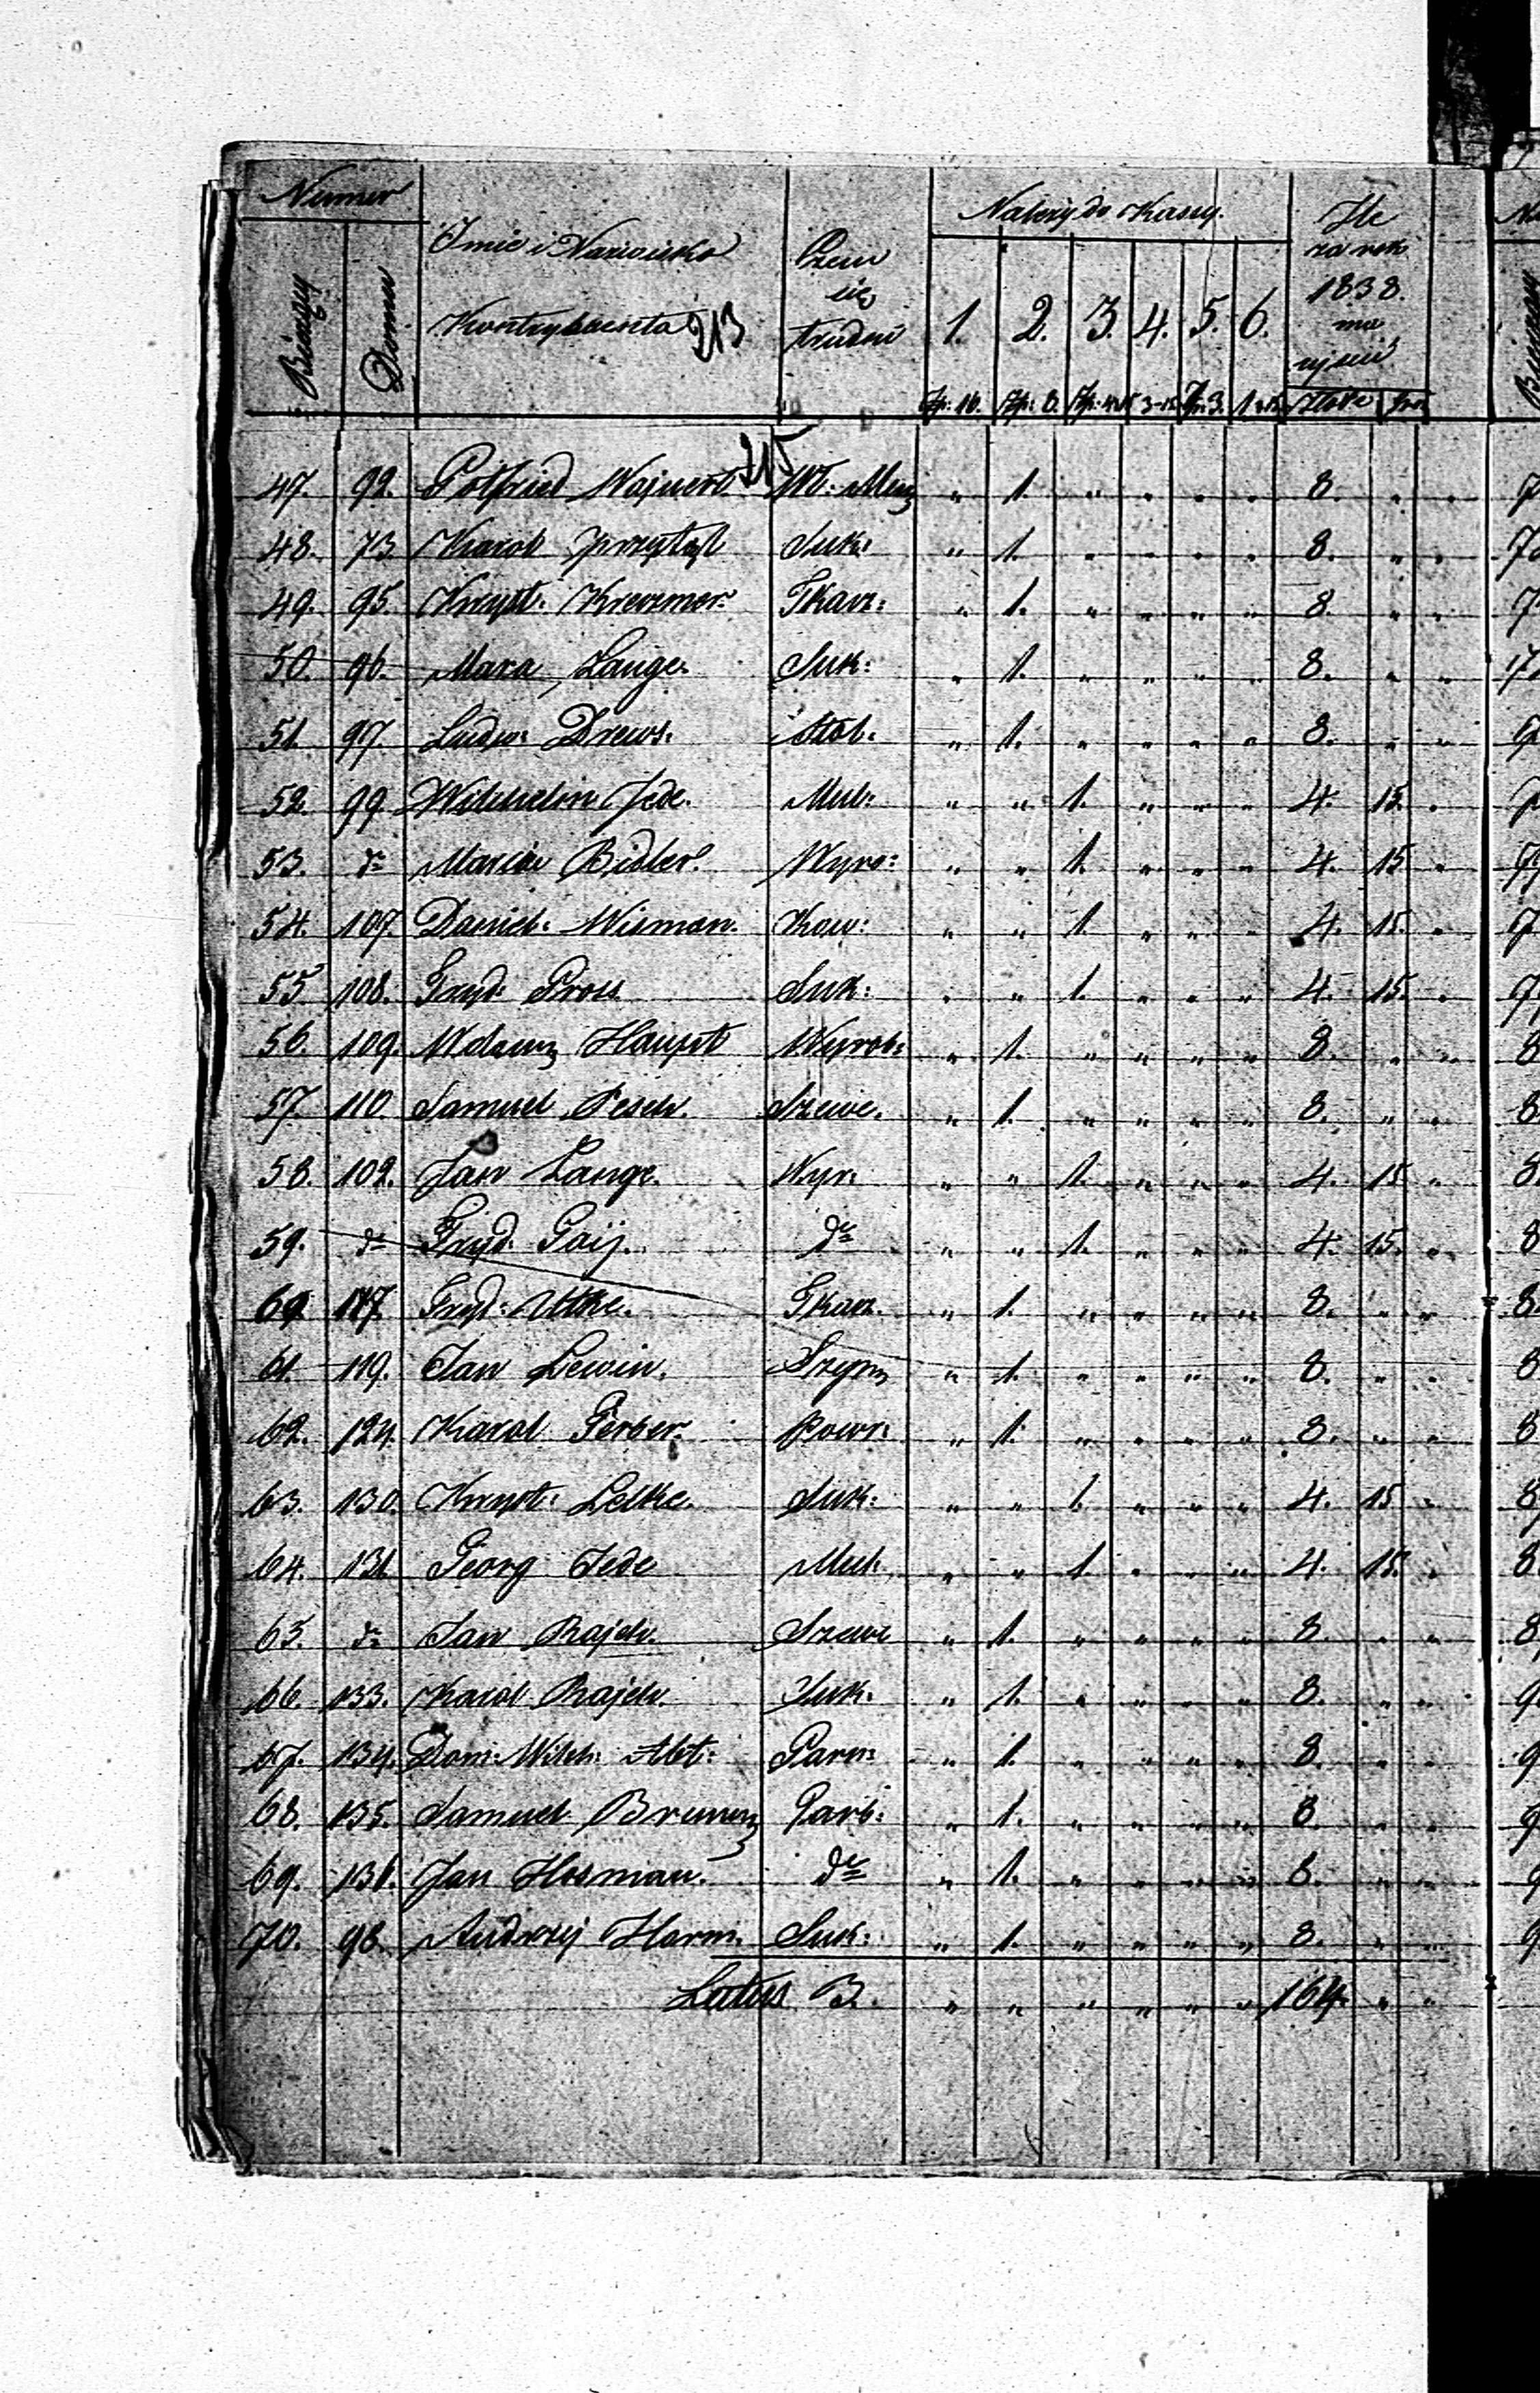 Numer
Bieżący Domu
Imie i Nazwisko Kontrybuenta
213
Czem się trudni
Należy do Kassy.
1. 2. 3. 4. 5. 6.
Ile za rok 1838. ma ujścić
złote gro
215
47. 92. Gotfried Wajnert Wł: Młyn " 1. " " " " 8. " "
48. 73 Karol Przytył Suk: " 1. " " " " 8. " "
49. 95. Kryst: Kreczmer Tkacz: " 1. " " " " 8. " "
50. 96. Mara Lange. Suk: " 1. " " " " 8. " "
51. 97. Ludw: Drews. Stol. " 1. " " " " 8. " "
52. 99. Wilhelm Jede. Mul: " " 1. " " " 4. 15. "
53. do Marcin Bidler. Wyro: " " 1. " " " 4. 15. "
54. 107. Daniel: Wisman. Kow: " " 1. " " " 4. 15. "
55 108. Fryd: Pross Suk: " " 1. " " " 4. 15. "
56. 109. Haupt Wyrob: " 1. " " " " 8. " "
57. 110. Samuel Pesch. Szewc. " 1. " " " " 8. " "
58. 102. Jan Lange. Wyr: " " 1. " " " 4. 15 "
59. do Fryd. Goij. do " " 1. " " " 4. 15. "
60 117. Fryd: Utke. Tkacz. " 1. " " " " 8. " "
61. 119. Jan Lewin. Szyn " 1. " " " " 8. " "
62. 124. Karol Gerber. Powr: " 1. " " " " 8. " "
63. 130. Kryst: Lelke. Suk: " " 1. " " " 4. 15 "
64. 131 Georg Jede Mul. " " 1. " " " 4. 15. "
65. do Jan Rajch. Szewc " 1. " " " " 8. " "
66. 133. Karol Rajch. Suk. " 1. " " " " 8. " "
67. 134. Dani: Wilh: Abt: Garn: " 1. " " " " 8. " "
68. 135. Samuel Garb: " 1. " " " " 8. " "
69. 136. Jan Hosman. do " 1. " " " " 8. " "
70. 98. Andrzej Harm. Suk: " 1. " " " " 8. " "
Latus B. " " " " " " 164. " "